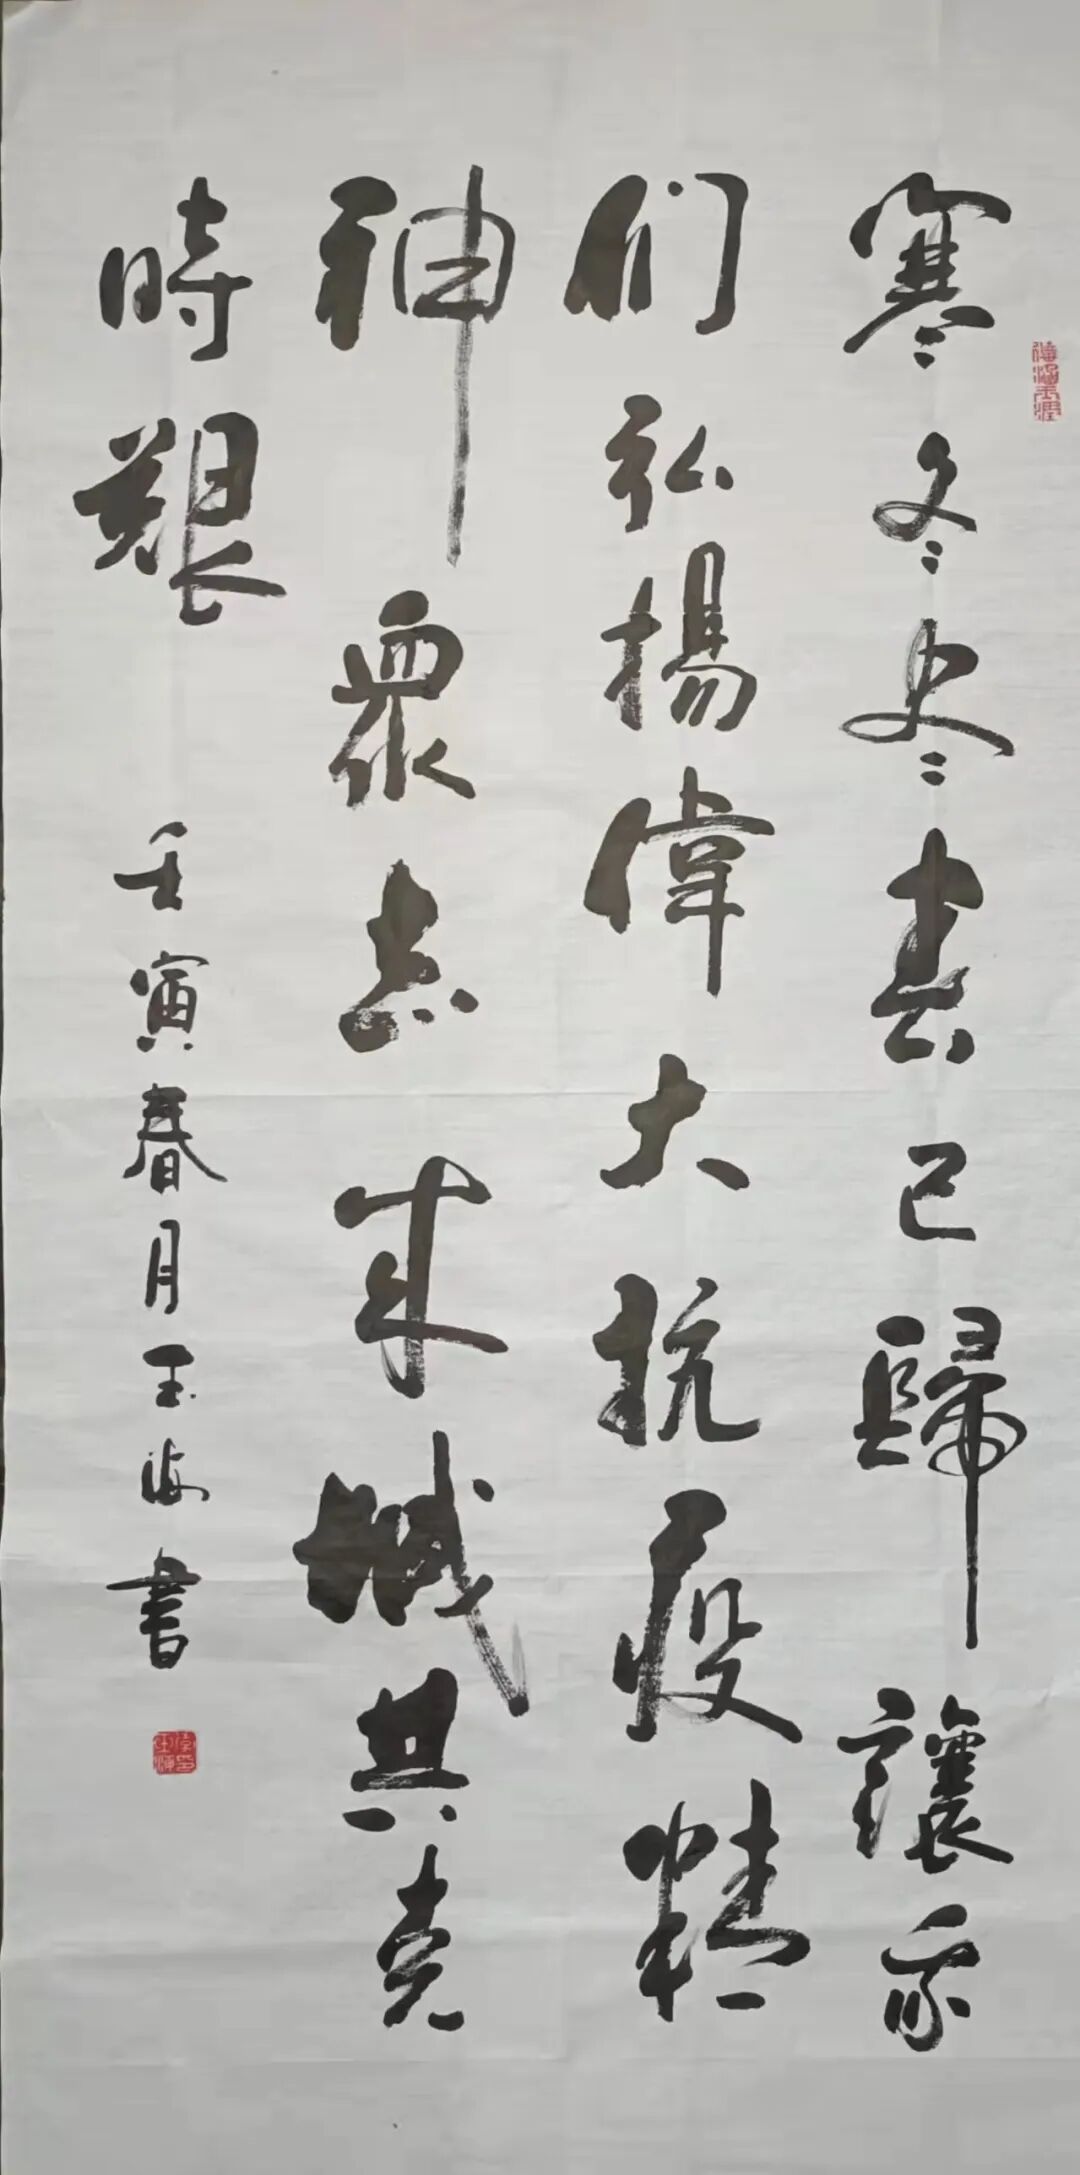 寒冬尽春已歸讓我
们弘揚偉大抗疫精
神眾志成城共克
時艱
壬寅春月玉海書